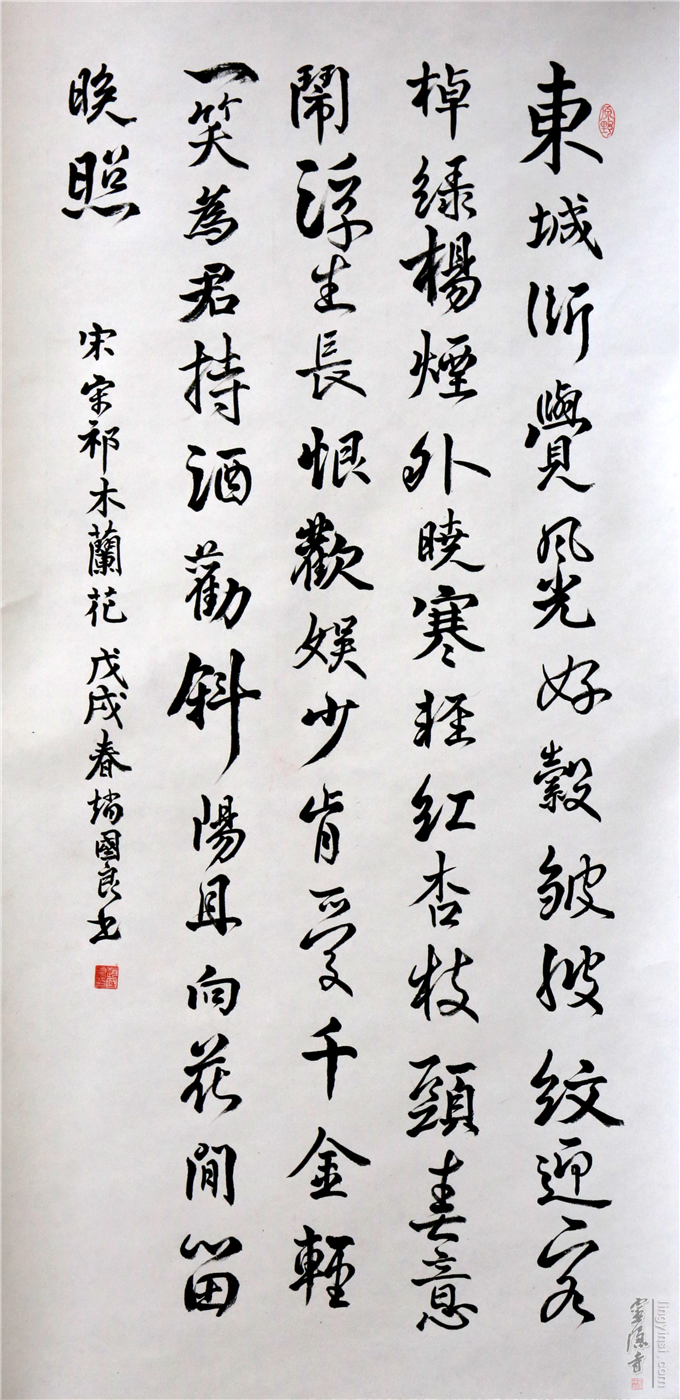 東城漸覺風光好縠皺波紋迎客
棹緑楊煙外曉寒輕紅杏枝頭春意
鬧浮生長恨歡娛少肯愛千金輕
一笑為君持酒勸斜陽且向花間留
晚照
宋宋祁木蘭花 戊戌春趙國良書
靈隱寺
lingyinsi.com